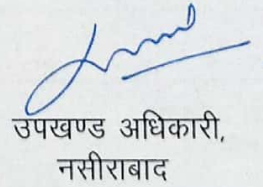 उपखण्ड अधिकारी,
नसीराबाद